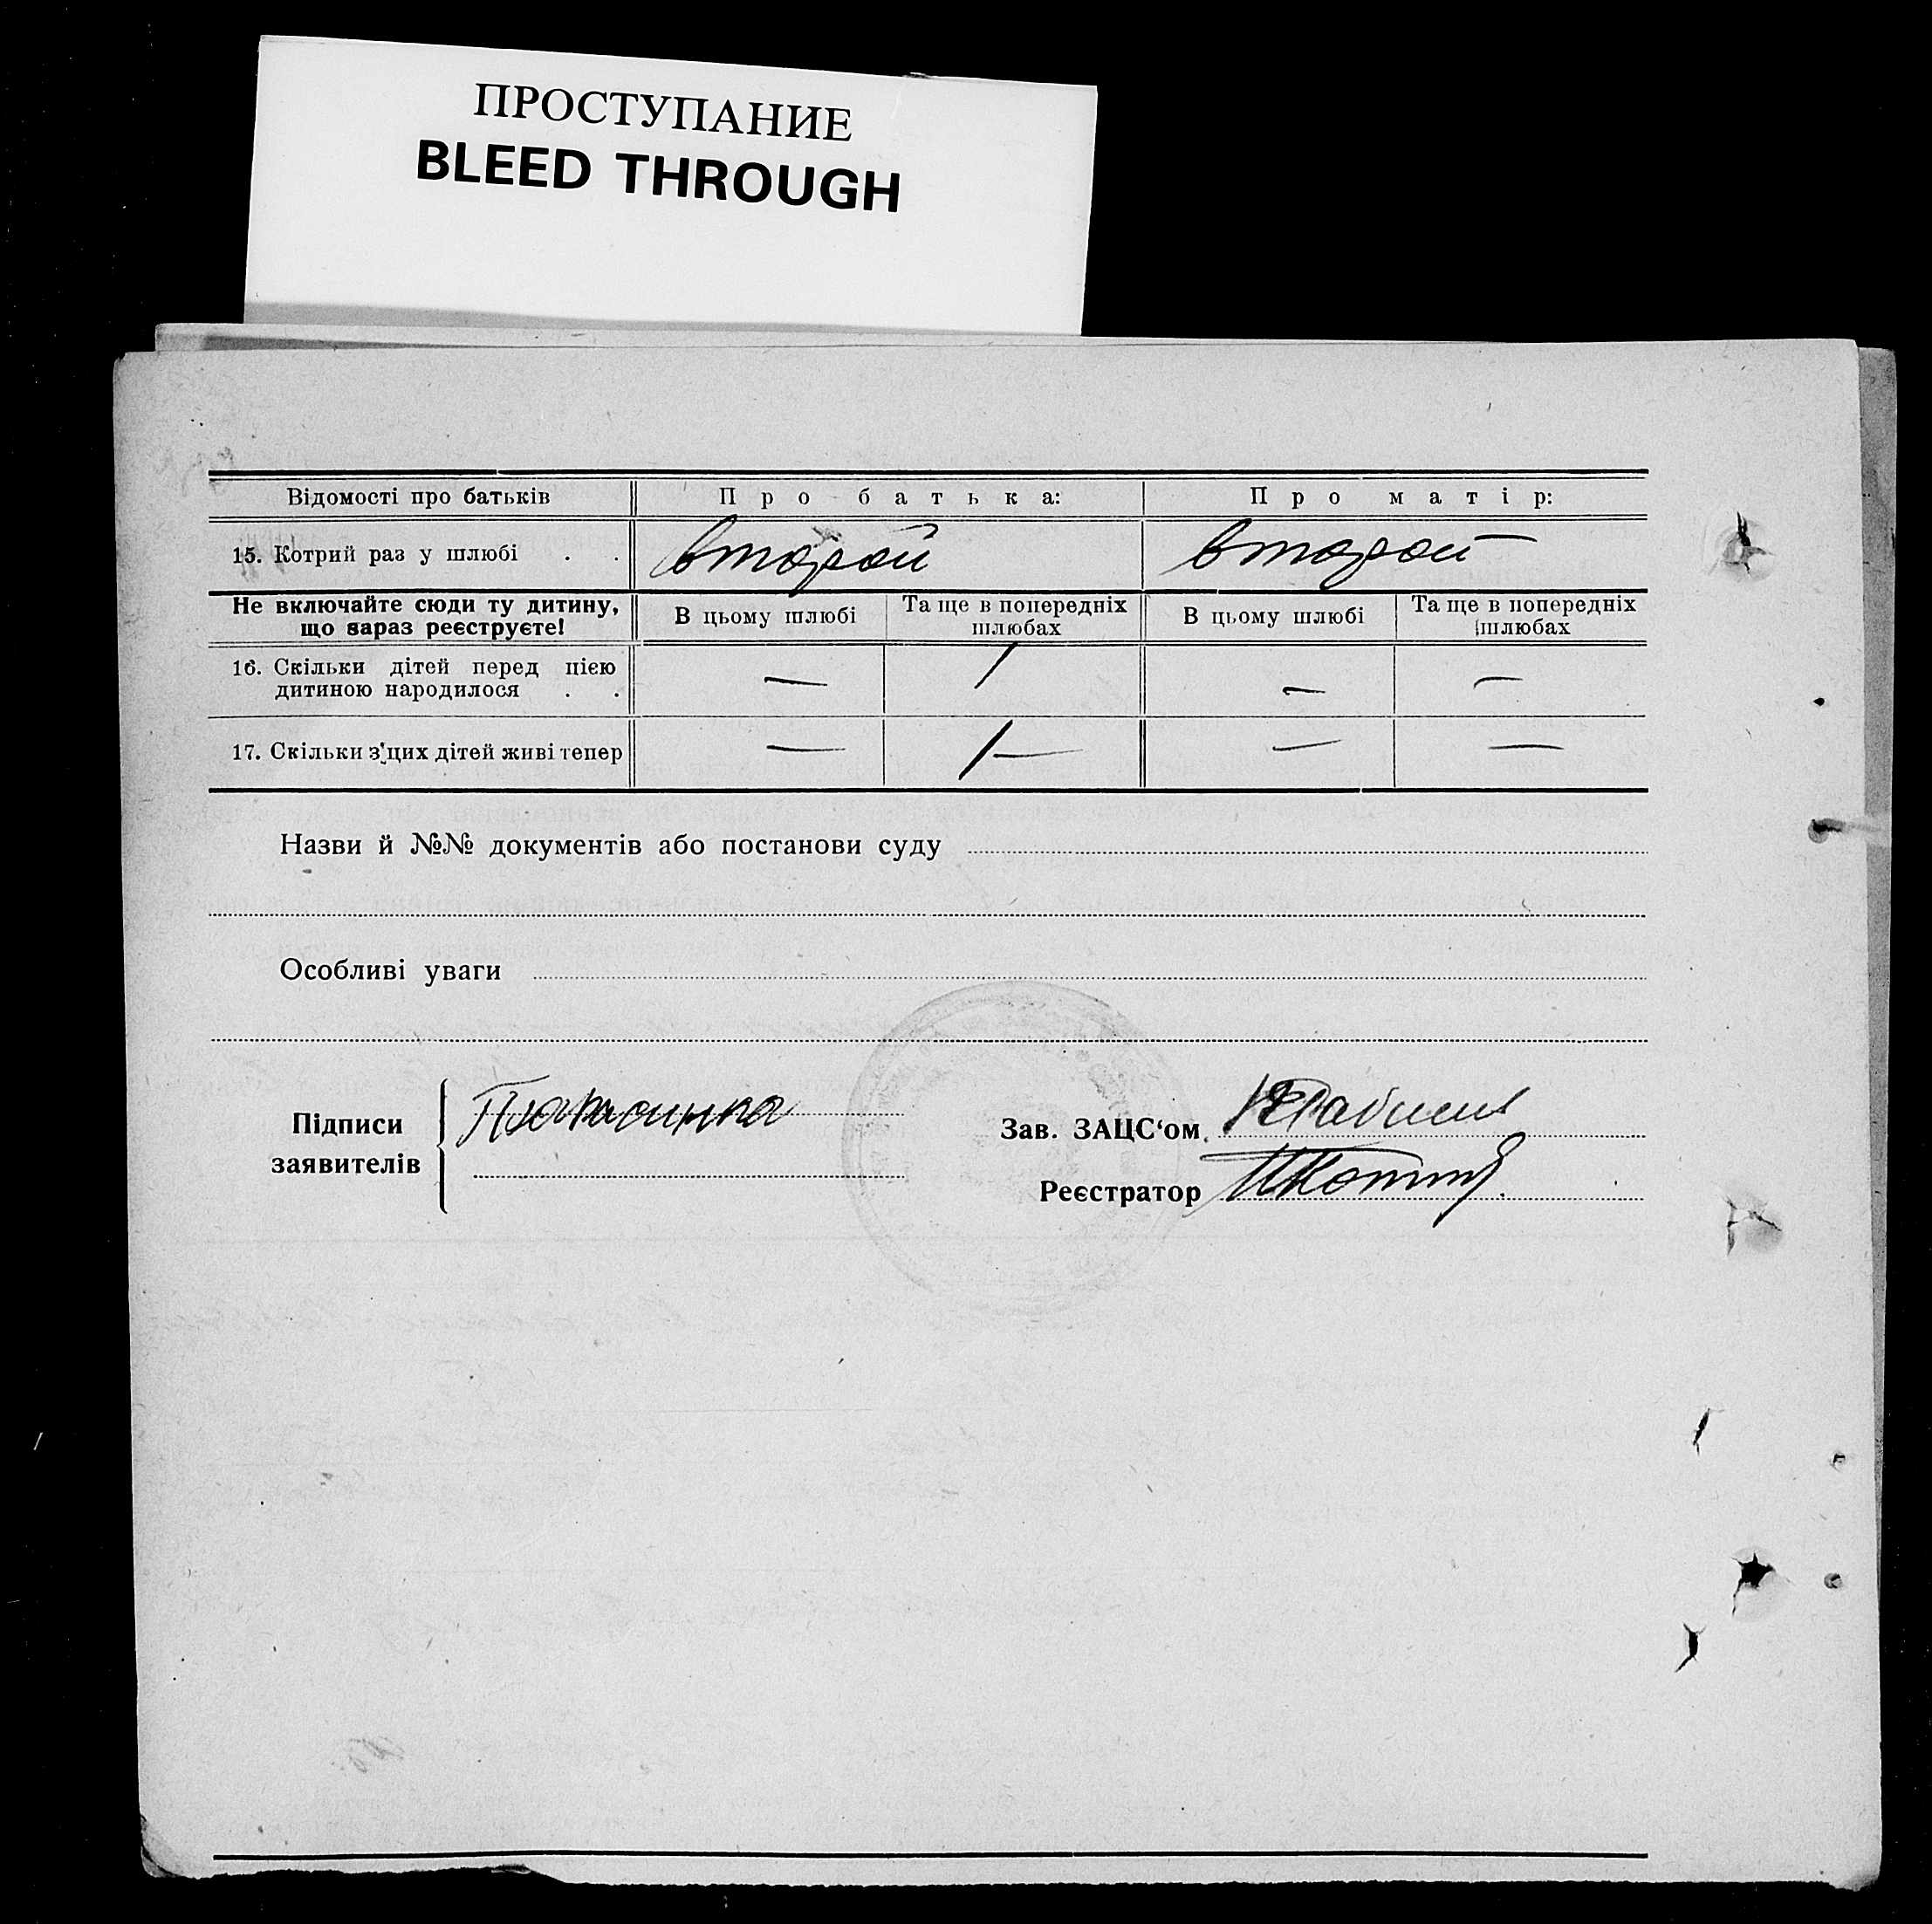 ПРОСТУПАНИЕ
BLEED THROUGH
Відомості про батьків Про батька: Про матір:
15. Котрий раз у шлюбі . . второй второй
Не включайте сюди ту дитину, що зараз реєструєте! В цьому шлюбі Та ще в попередніх шлюбах В цьому шлюбі Та ще в попередніх шлюбах
16. Скільки дітей перед цією
дитиною народилося . . — 1 — —
17. Скільки з'цих дітей живі тепер — 1— — —
Назви й №№ документів або постанови суду
Особливі уваги
Підписи
заявителів
Зав. ЗАЦС‘ом
Реєстратор